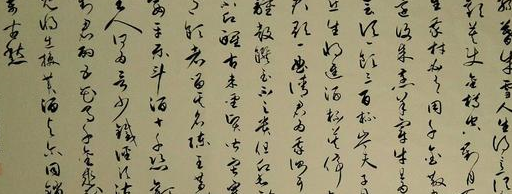 暮成雪人生得意須
歡莫使金樽空對月
生我材必有用千金散
還復來烹羊宰牛且
會須一飲三百杯岑夫子
丘生將進酒杯莫停
君歌一曲請君為我傾耳
鐘鼓饌玉不足貴但願長
不願醒古來聖賢皆寂
有飲者留其名陳王昔
宴平樂斗酒十千恣歡
主人何為言少錢徑須沽
對君酌五花馬千金裘
兒將出換美酒與爾同銷
萬古愁